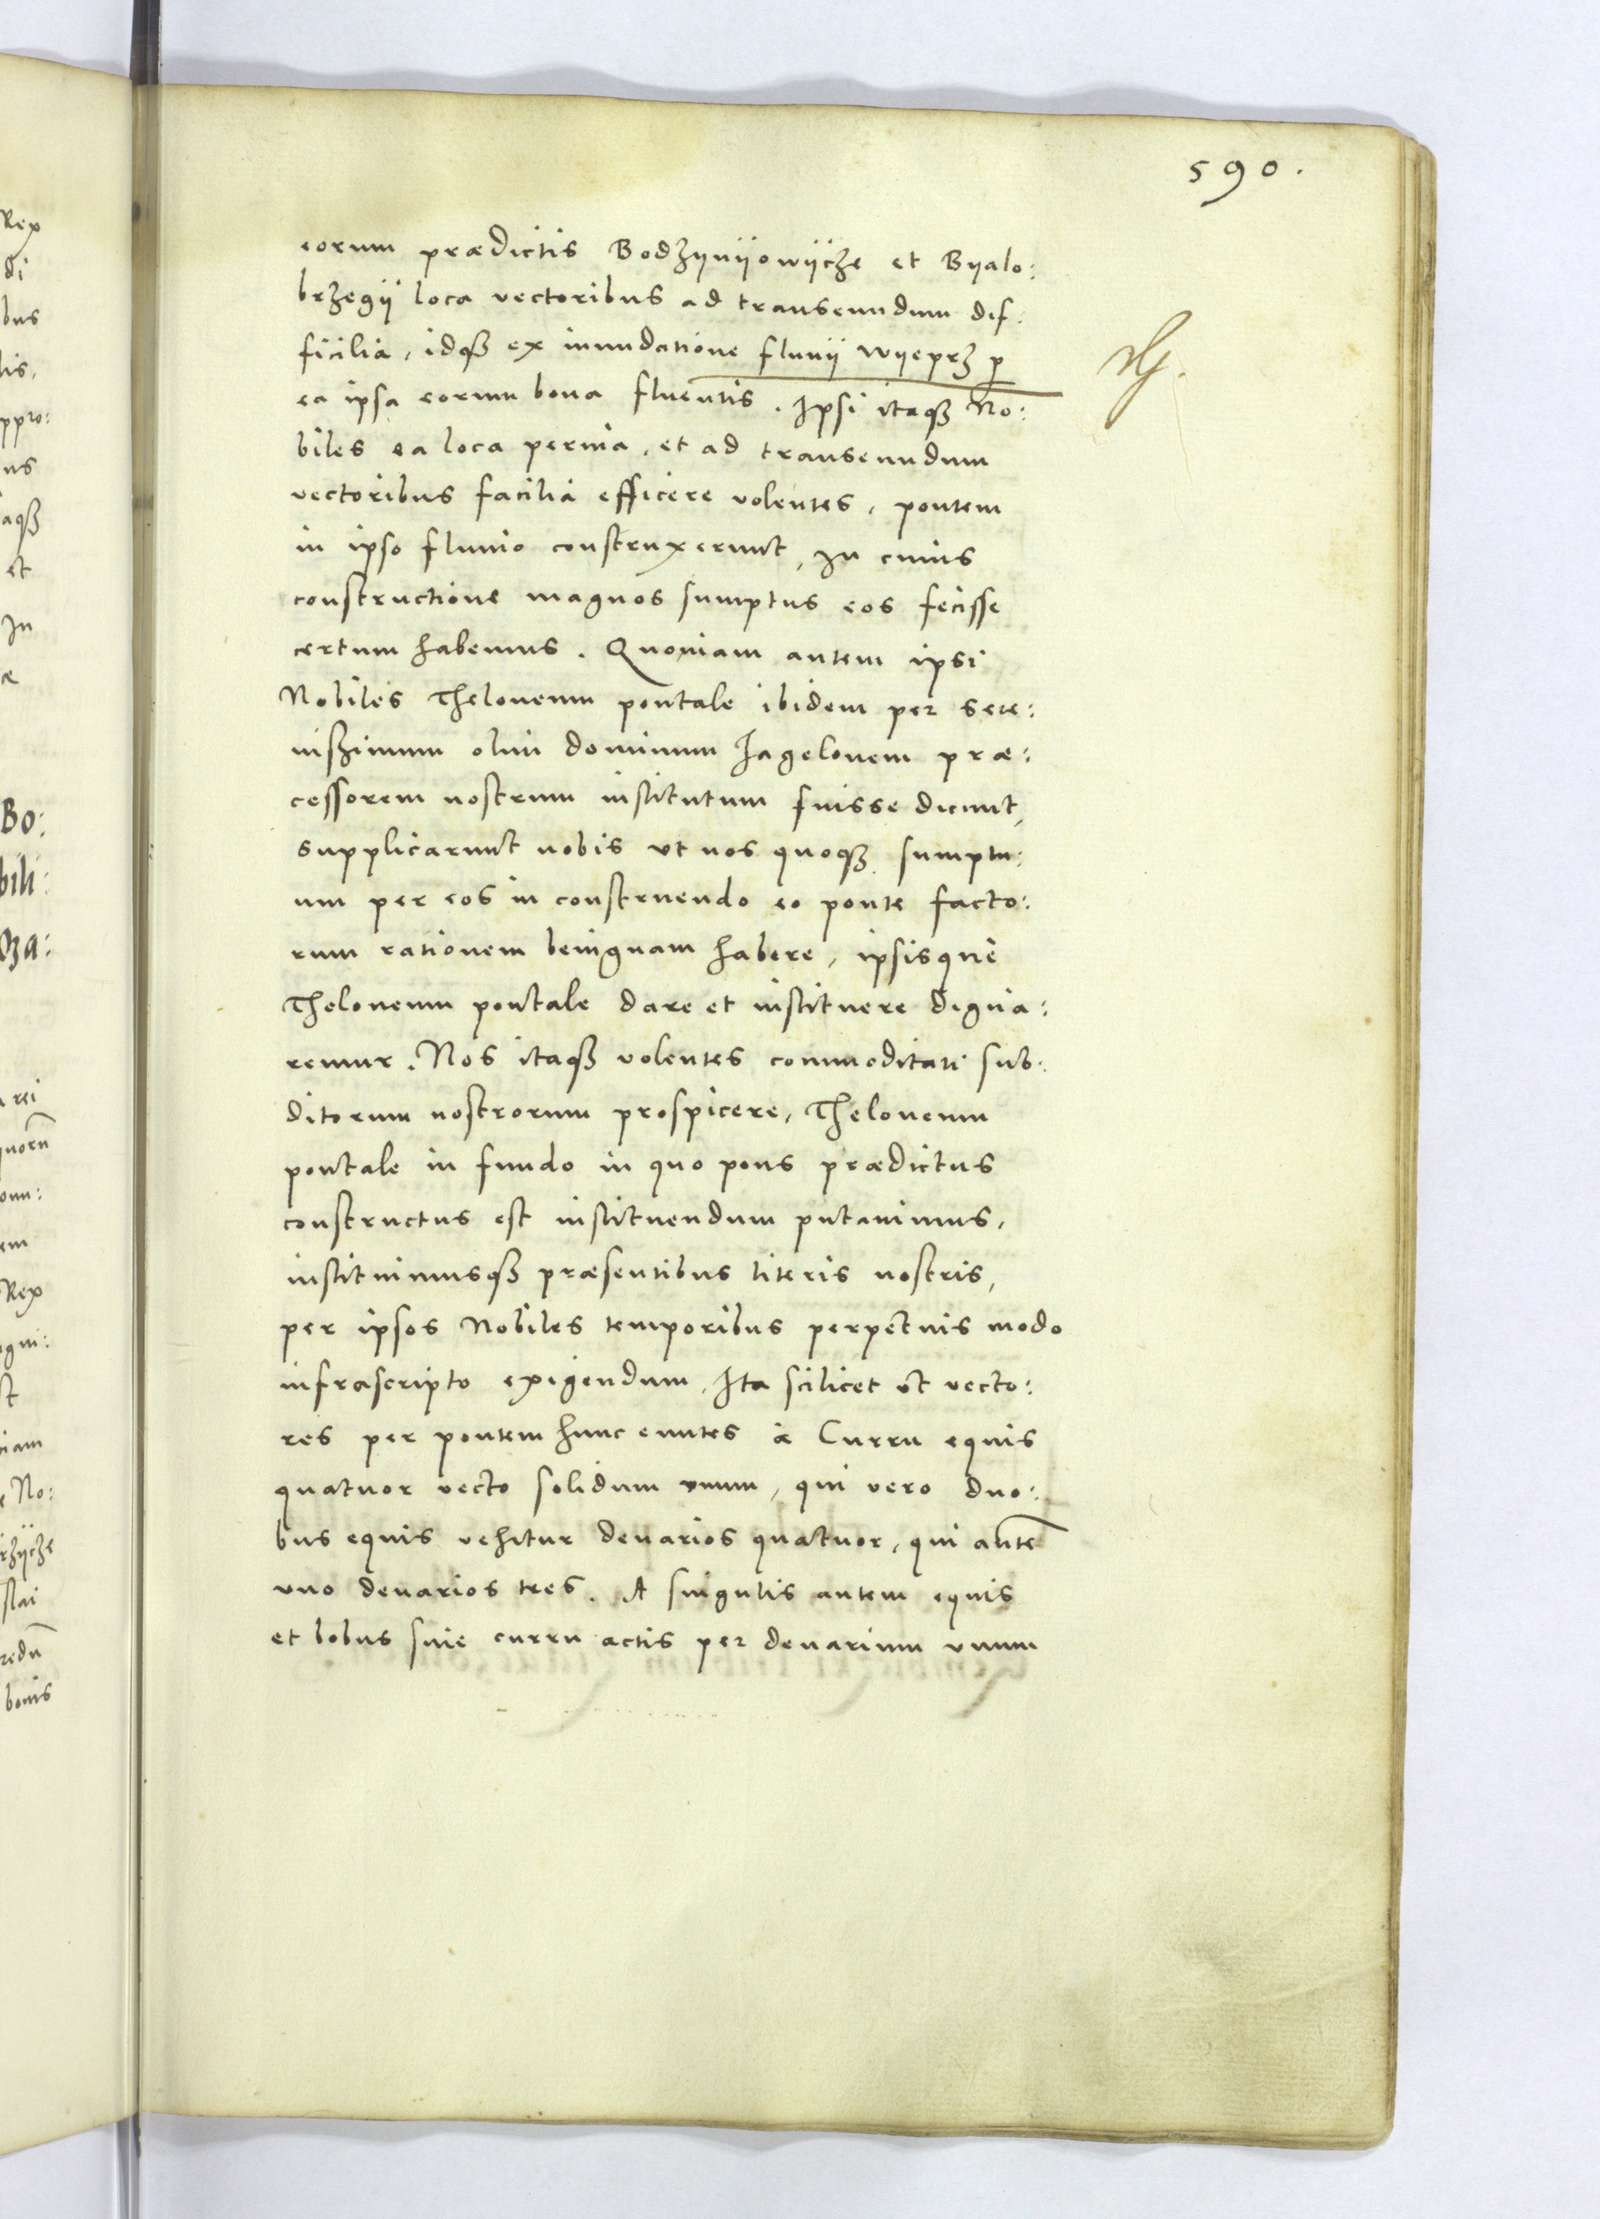 590.
eorum prædictis Bodzÿnÿowÿcze et Bÿalo:
brzegÿ loca vectoribus ad transeundum dif:
ficilia, idqꝫ ex inundatione fluvii Wÿeprz ꝑ
ea ipsa eorum bona fluentis. Ipsi itaqꝫ No:
biles ea loca pervia, et ad transeundum
vectoribus facilia efficere volentes, pontem
in ipso fluvio construxerunt, In cuius
constructione magnos sumptus eos fecisse
certum habemus. Quoniam autem ipsi
Nobiles Theloneum pontale ibidem per sere:
niszimum olim dominum Jagelonem præ:
cessorem nostrum institutum fuisse dicunt,
supplicarunt nobis ut nos quoqꝫ sumptu:
um per eos in construendo eo ponte facto:
rum rationem benignam habere, ipsisque
Theloneum pontale dare et instituere digna:
remur. Nos itaqꝫ volentes commoditati sub:
ditorum nostrorum prospicere, Theloneum
pontale in fundo in quo pons prædictus
constructus est instituendum putavimus,
instituimusqꝫ præsentibus literis nostris,
per ipsos Nobiles temporibus perpetuis modo
infrascripto exigendum, Ita scilicet ut vecto:
res per pontem hunc euntes à Curru equis
quatuor vecto solidum unum, qui vero duo:
bus equis vehitur denarios quatuor, qui autē
uno denarios tres. A singulis autem equis
et bobus sine curru actis per denarium unum